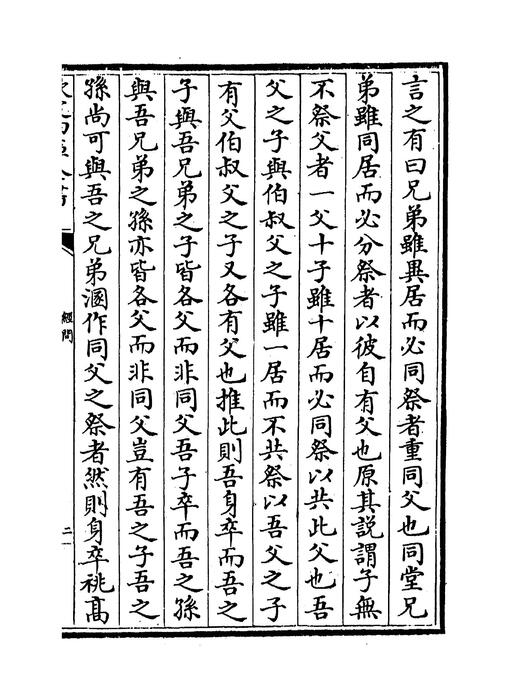 言之有曰兄弟雖異居而必同祭者重同父也同堂兄
弟雖同居而必分祭者以彼自有父也原其説謂子無
不祭父者一父十子雖十居而必同祭以共此父也吾
父之子與伯叔父之子雖一居而不共祭以吾父之子
有父伯叔父之子又各有父也推此則吾身卒而吾之
子與吾兄弟之子皆各父而非同父吾子卒而吾之孫
與吾兄弟之孫亦皆各父而非同父豈有吾之子吾之
孫尚可與吾之兄弟溷作同父之祭者然則身卒祧高
經問